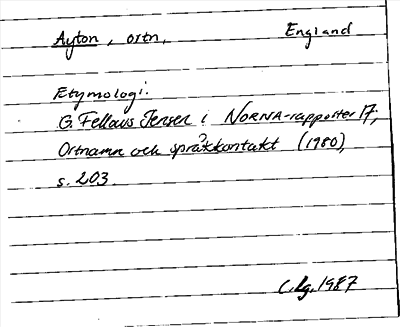 Ayton, ortn, England
Etymologi:
G. Fellows Jensen i NORNA-rapporter 17,
Ortnamn och språkkontakt (1980),
s. 203.
C.Lg. 1987